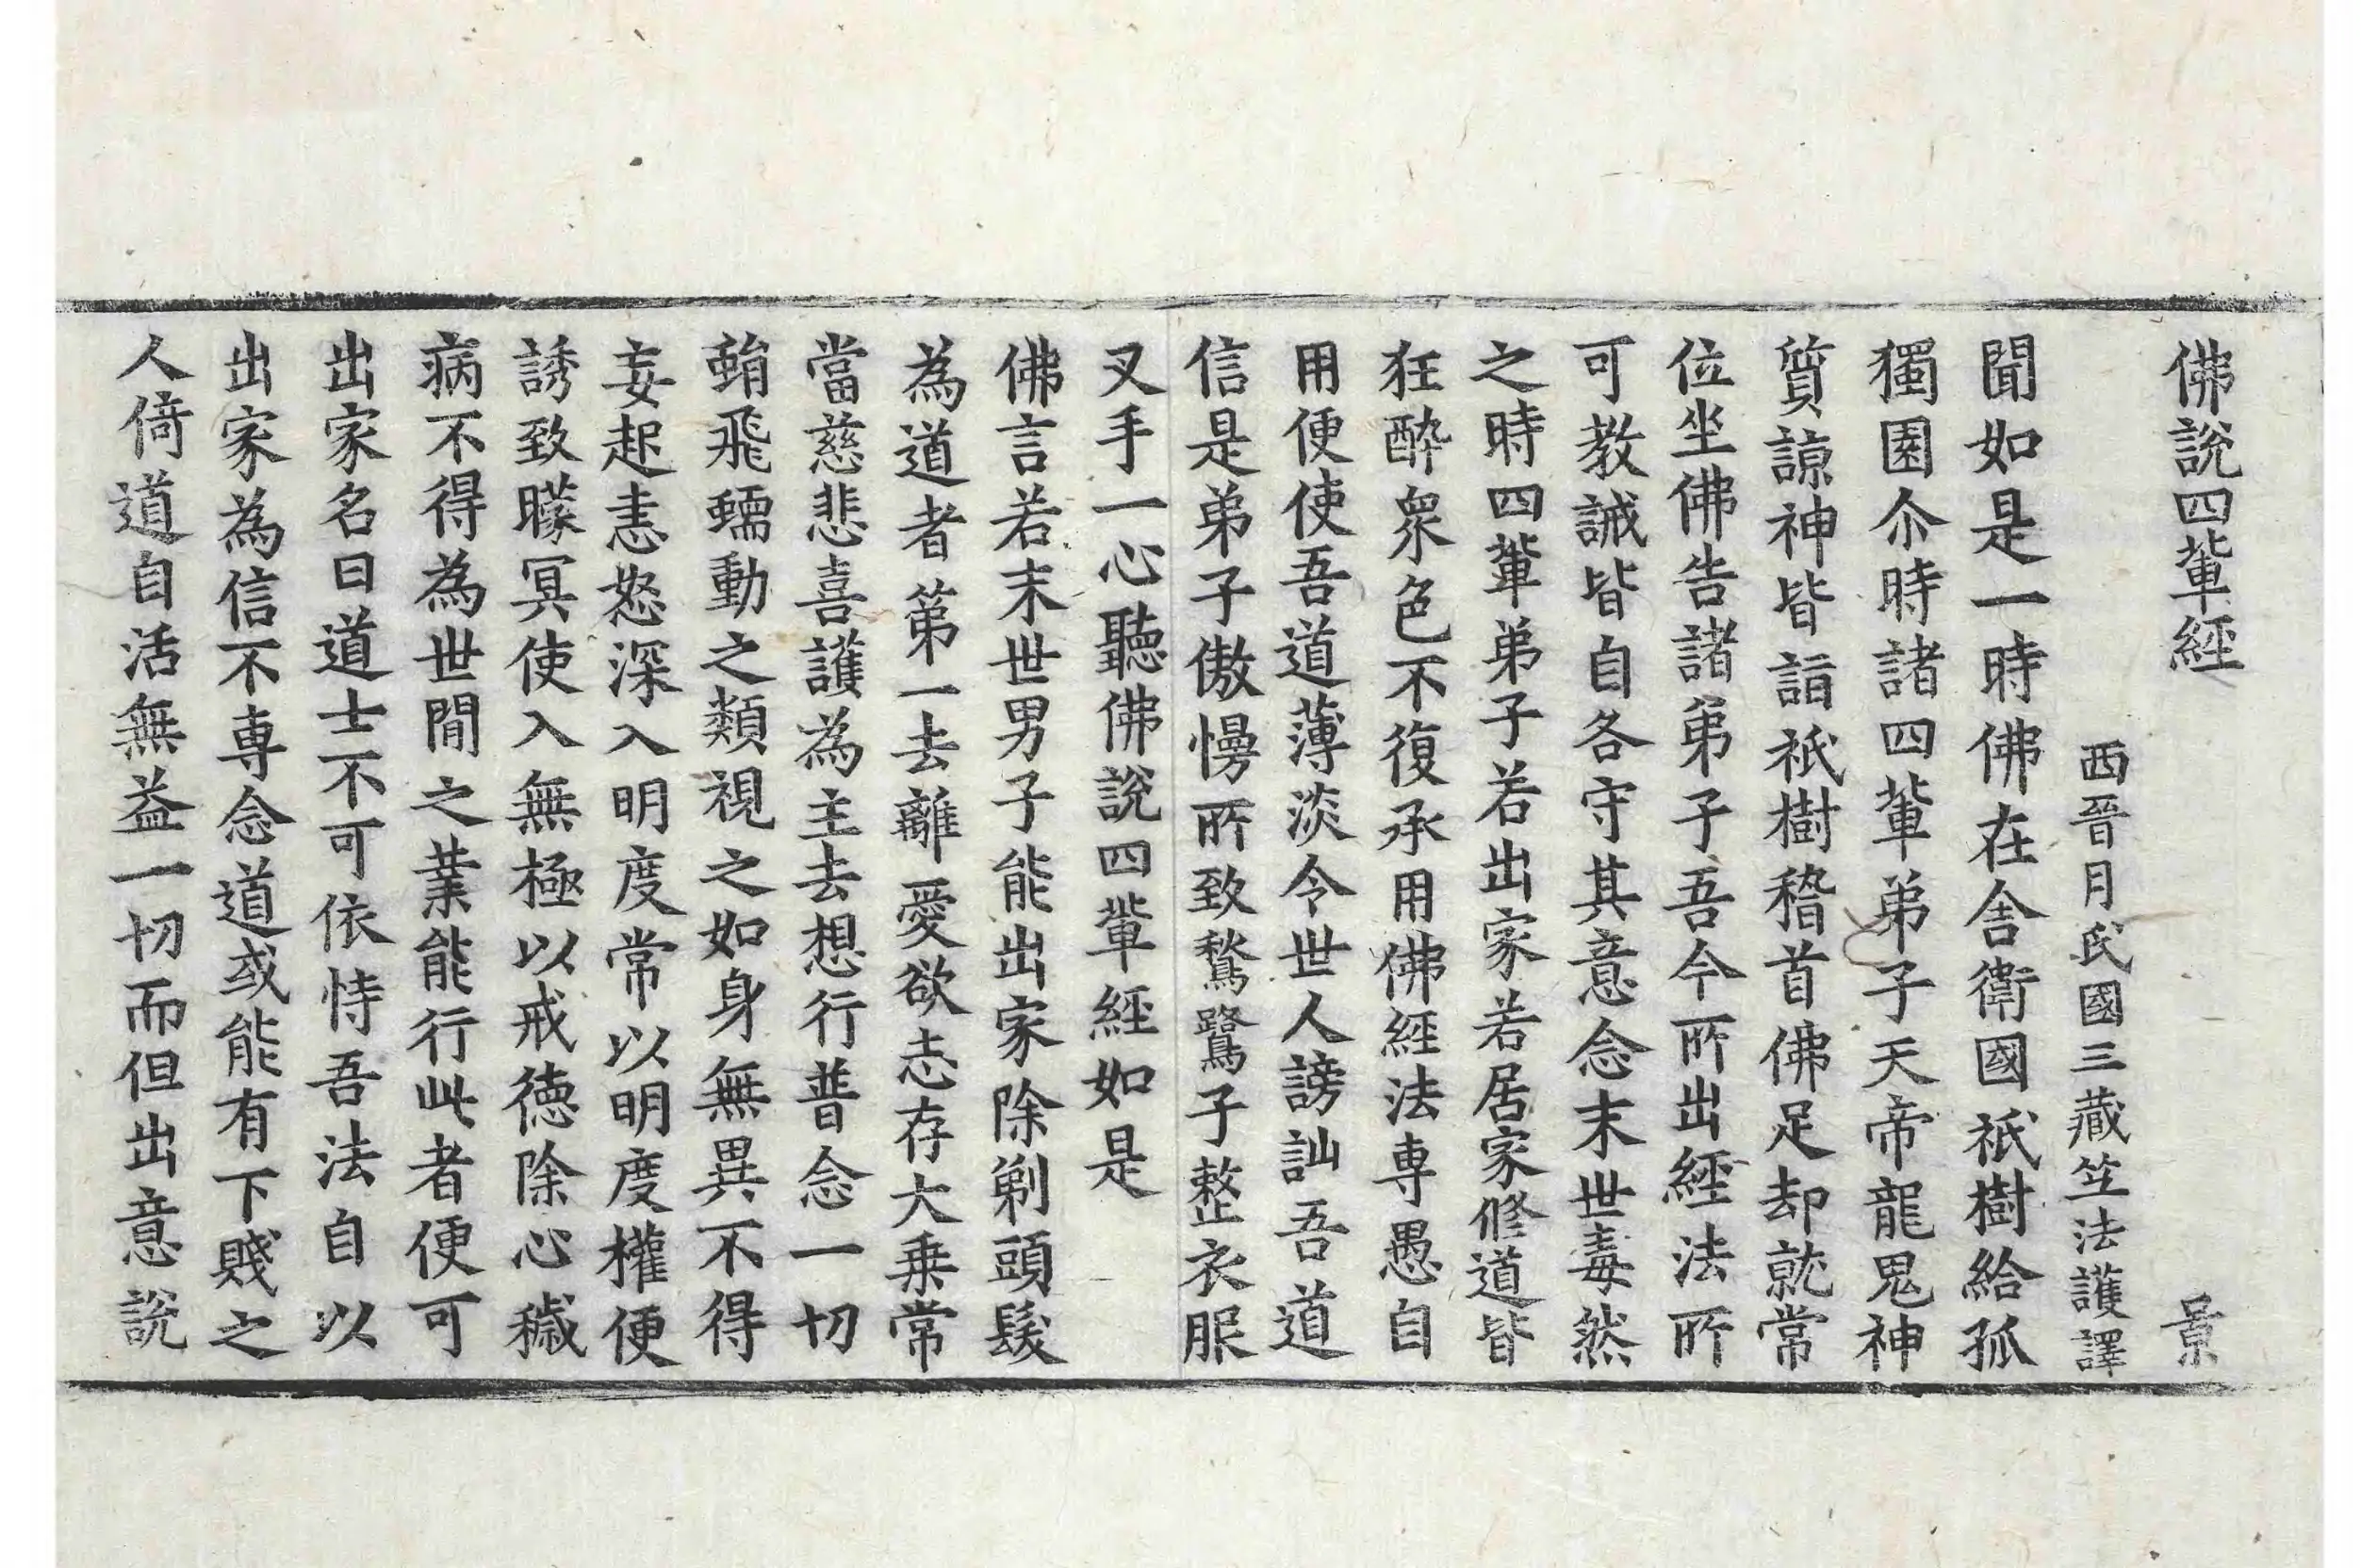 佛說四輩經 景
西晉月氏國三藏竺法護譯
聞如是一時佛在舍衛國祇樹給孤
獨園尒時諸四輩弟子天帝龍鬼神
質諒神皆詣祇樹稽首佛足却就常
位坐佛告諸弟子吾今所出經法所
可教誡皆自各守其意念末世毒然
之時四輩弟子若出家若居家修道皆
狂醉衆色不復承用佛經法専愚自
用便使吾道薄淡令世人謗訕吾道
信是弟子傲慢所致鶖鷺子整衣服
叉手一心聽佛說四輩經如是
佛言若末世男子能出家除剃頭髮
為道者第一去離愛欲志存大乗常
當慈悲喜護為主去想行普念一切
蜎飛蠕動之類視之如身無異不得
妄起恚怒深入明度常以明度權便
誘致矇冥使入無極以戒德除心穢
病不得為世間之業能行此者便可
出家名曰道士不可依恃吾法自以
出家為信不専念道或能有下賤之
人倚道自活無益一切而但出意說